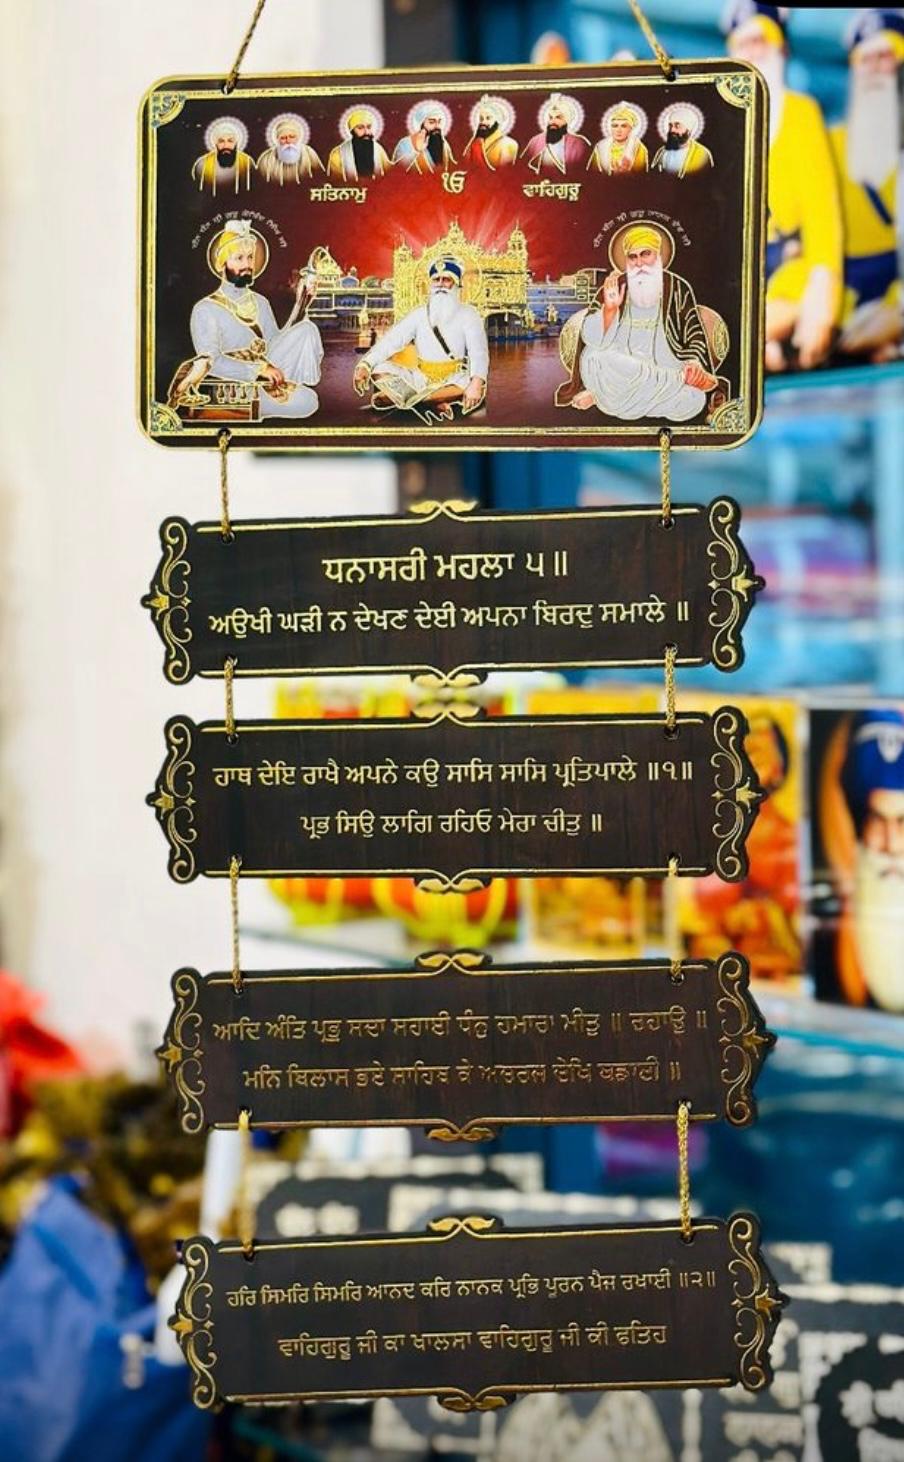 ਸਤਿਨਾਮੁ ੴ ਵਾਹਿਗੁਰੂ
ਧੰਨ ਧੰਨ ਸ੍ਰੀ ਗੁਰੂ ਗੋਬਿੰਦ ਸਿੰਘ ਜੀ
ਧੰਨ ਧੰਨ ਸ੍ਰੀ ਗੁਰੂ ਨਾਨਕ ਦੇਵ ਜੀ
ਧਨਾਸਰੀ ਮਹਲਾ ੫ ॥
ਅਉਖੀ ਘੜੀ ਨ ਦੇਖਣ ਦੇਈ ਅਪਨਾ ਬਿਰਦੁ ਸਮਾਲੇ ॥
ਹਾਥ ਦੇਇ ਰਾਖੈ ਅਪਨੇ ਕਉ ਸਾਸਿ ਸਾਸਿ ਪ੍ਰਤਿਪਾਲੇ ॥੧॥
ਪ੍ਰਭ ਸਿਉ ਲਾਗਿ ਰਹਿਓ ਮੇਰਾ ਚੀਤੁ ॥
ਆਦਿ ਅੰਤਿ ਪ੍ਰਭੁ ਸਦਾ ਸਹਾਈ ਧੰਨੁ ਹਮਾਰਾ ਮੀਤੁ ॥ ਰਹਾਉ ॥
ਮਨਿ ਬਿਲਾਸ ਭਏ ਸਾਹਿਬ ਕੇ ਅਚਰਜ ਦੇਖਿ ਬਡਾਈ ॥
ਹਰਿ ਸਿਮਰਿ ਸਿਮਰਿ ਆਨਦ ਕਰਿ ਨਾਨਕ ਪ੍ਰਭਿ ਪੂਰਨ ਪੈਜ ਰਖਾਈ ॥੨॥
ਵਾਹਿਗੁਰੂ ਜੀ ਕਾ ਖਾਲਸਾ ਵਾਹਿਗੁਰੂ ਜੀ ਕੀ ਫਤਿਹ